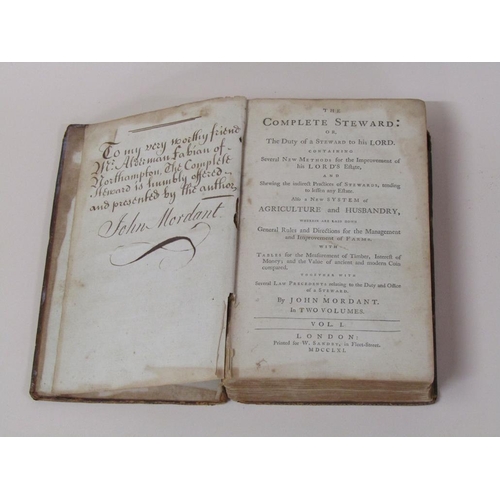 To my very worthy friend
Mr. Alderman Fabian of
Northampton, The Complete
Steward is humbly offered
and presented by the author,
John Mordant.
THE
COMPLETE STEWARD:
OR,
The Duty of a STEWARD to his LORD.
CONTAINING
Several NEW METHODS for the Improvement of
his LORD'S Estate,
AND
Shewing the indirect Practices of STEWARDS, tending
to lessen any Estate.
Also a NEW SYSTEM of
AGRICULTURE and HUSBANDRY,
WHEREIN ARE LAID DOWN
General Rules and Directions for the Management
and Improvement of FARMS.
WITH
TABLES for the Measurement of Timber, Interest of
Money; and the Value of ancient and modern Coin
compared.
TOGETHER WITH
Several LAW PRECEDENTS relating to the Duty and Office
of a STEWARD.
By JOHN MORDANT.
In TWO VOLUMES.
VOL. I.
LONDON:
Printed for W. SANDBY, in Fleet-Street.
MDCCLXI.